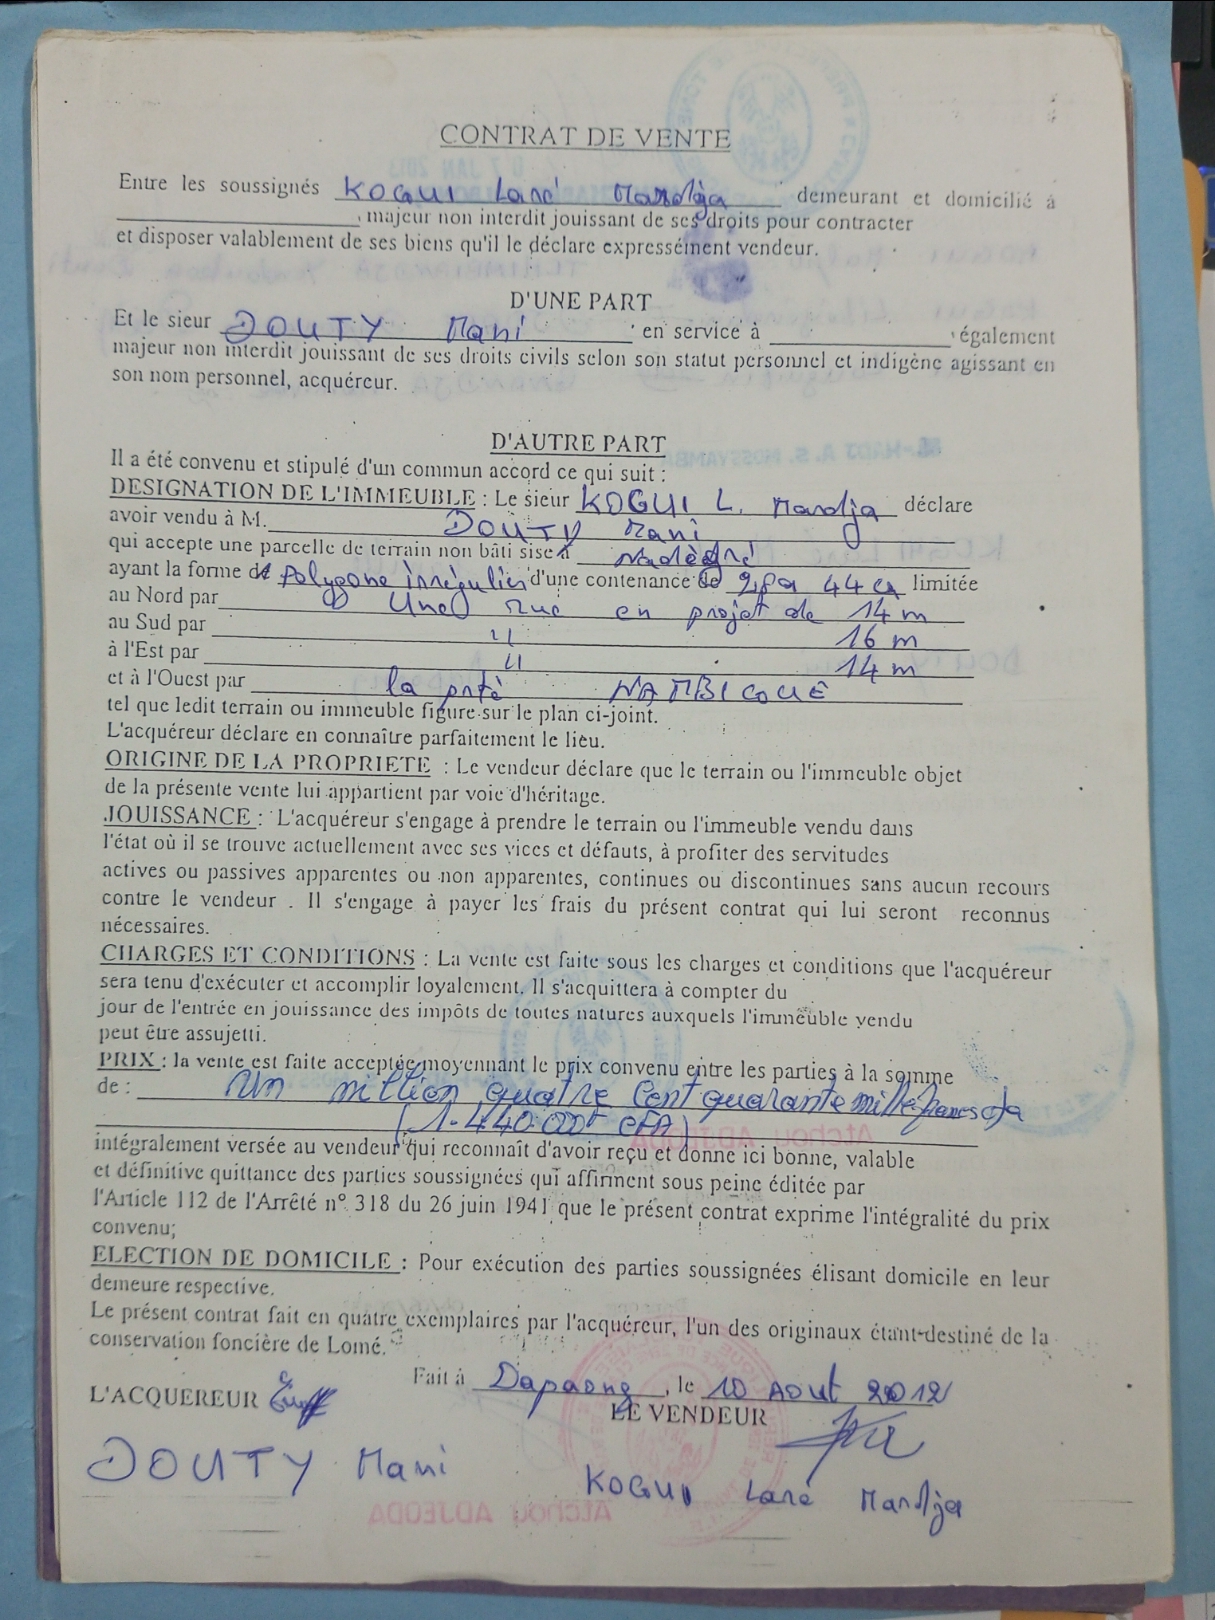 CONTRAT DE VENTE
Entre les soussignés KOGUI Lané Mandja demeurant et domicilié à
, majeur non interdit jouissant de ses droits pour contracter
et disposer valablement de ses biens qu'il le déclare expressément vendeur.
D'UNE PART
Et le sieur DOUTY Mani en service à également
majeur non interdit jouissant de ses droits civils selon son statut personnel et indigène agissant en
son nom personnel, acquéreur.
D'AUTRE PART
Il a été convenu et stipulé d'un commun accord ce qui suit :
DESIGNATION DE L'IMMEUBLE : Le sieur KOGUI L. Mandja déclare
avoir vendu à M. DOUTY Mani
qui accepte une parcelle de terrain non bâti sise à
ayant la forme de polygone irrégulier d'une contenance de 44 ca limitée
au Nord par Une rue en projet de 14 m
au Sud par " 16 m
à l'Est par " 14 m
et à l'Ouest par la pté NAMBICOUE
tel que ledit terrain ou immeuble figure sur le plan ci-joint.
L'acquéreur déclare en connaître parfaitement le lieu.
ORIGINE DE LA PROPRIETE : Le vendeur déclare que le terrain ou l'immeuble objet
de la présente vente lui appartient par voie d'héritage.
JOUISSANCE : L'acquéreur s'engage à prendre le terrain ou l'immeuble vendu dans
l'état où il se trouve actuellement avec ses vices et défauts, à profiter des servitudes
actives ou passives apparentes ou non apparentes, continues ou discontinues sans aucun recours
contre le vendeur . Il s'engage à payer les frais du présent contrat qui lui seront reconnus
nécessaires.
CHARGES ET CONDITIONS : La vente est faite sous les charges et conditions que l'acquéreur
sera tenu d'exécuter et accomplir loyalement. Il s'acquittera à compter du
jour de l'entrée en jouissance des impôts de toutes natures auxquels l'immeuble vendu
peut être assujetti.
PRIX : la vente est faite acceptée moyennant le prix convenu entre les parties à la somme
de : Un million quatre cent quarante mille francs cfa
(1.440.000F CFA)
intégralement versée au vendeur qui reconnaît d'avoir reçu et donne ici bonne, valable
et définitive quittance des parties soussignées qui affirment sous peine éditée par
l'Article 112 de l'Arrêté n° 318 du 26 juin 1941 que le présent contrat exprime l'intégralité du prix
convenu;
ELECTION DE DOMICILE : Pour exécution des parties soussignées élisant domicile en leur
demeure respective.
Le présent contrat fait en quatre exemplaires par l'acquéreur, l'un des originaux étant destiné de la
conservation foncière de Lomé.
Fait à Dapaong, le 10 Aout 2012
L'ACQUEREUR
LE VENDEUR
DOUTY Mani
KOGUI Lané Mandja
Atchou ADJEODA